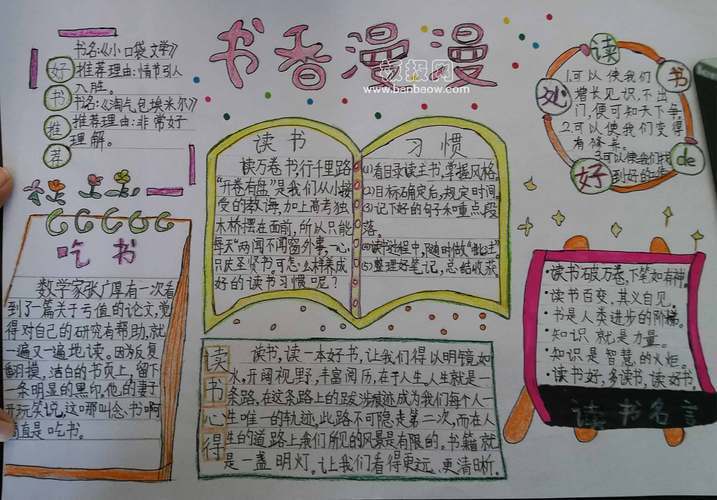 书香漫漫
板报网
www.banbaow.com
好书推荐
书名:《小口袋文学》
推荐理由:情节引
入胜。
书名:《淘气包埃米尔》
推荐理由:非常好
理解。
读书
读万卷书,行千里路
"开卷有益"是我们从小接
受的教诲,加上高考独
木桥摆在面前,所以只能
每天"两闻不闻窗外事,一心
只读圣贤书。可怎么样养成
好的读书习惯呢?
习惯
(1)看目录读主书,掌握风格。
(2)目标确定后,规定时间。
(3)记下好的句子和重点段
落。
(4)读书过程中,随时做"批注"。
(5)整理好笔记,总结收获
读书de好处
1.可以使我们
增长见识,不出
门,便可知天下事。
2.可以使我们变得
有修养。
3.可以使我们找
到好的
吃书
数学家张广厚有一次看
到了一篇关于亏值的论文,觉
得对自己的研究有帮助,就
一遍又一遍地读。因为反复
翻摸,洁白的书页上,留下
一条明显的黑印,他的妻子
开玩笑说,这哪叫念书啊
简直是吃书。
读书心得
读书,读一本好书,让我们得以明镜如
水,开阔视野,丰富阅历,在于人生,人生就是一
条路,在这条路上的跋涉痕迹成为我们每个人一
生唯一的轨迹,此路不可隐走第二次,而在人
生的道路上我们所见的风景是有限的。书籍就
是一盏明灯。让我们看得更远、更清晰。
·读书破万卷,下笔如有神。
·读书百变,其义自见。
·书是人类进步的阶梯。
·知识就是力量。
·知识是智慧的火炬。
·读书好,多读书,读好书。
读书名言